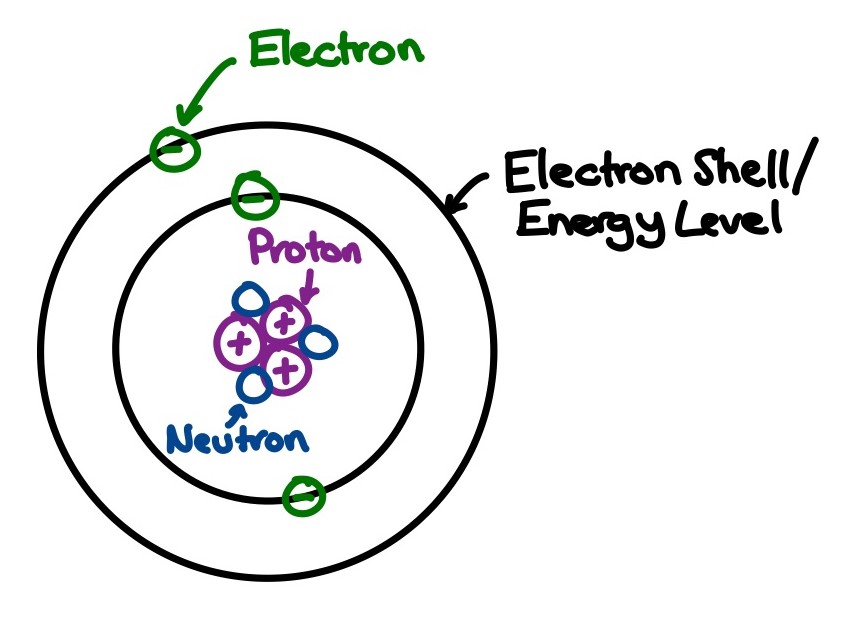 Electron
Electron Shell/
Energy Level
Proton
+
+
+
Neutron